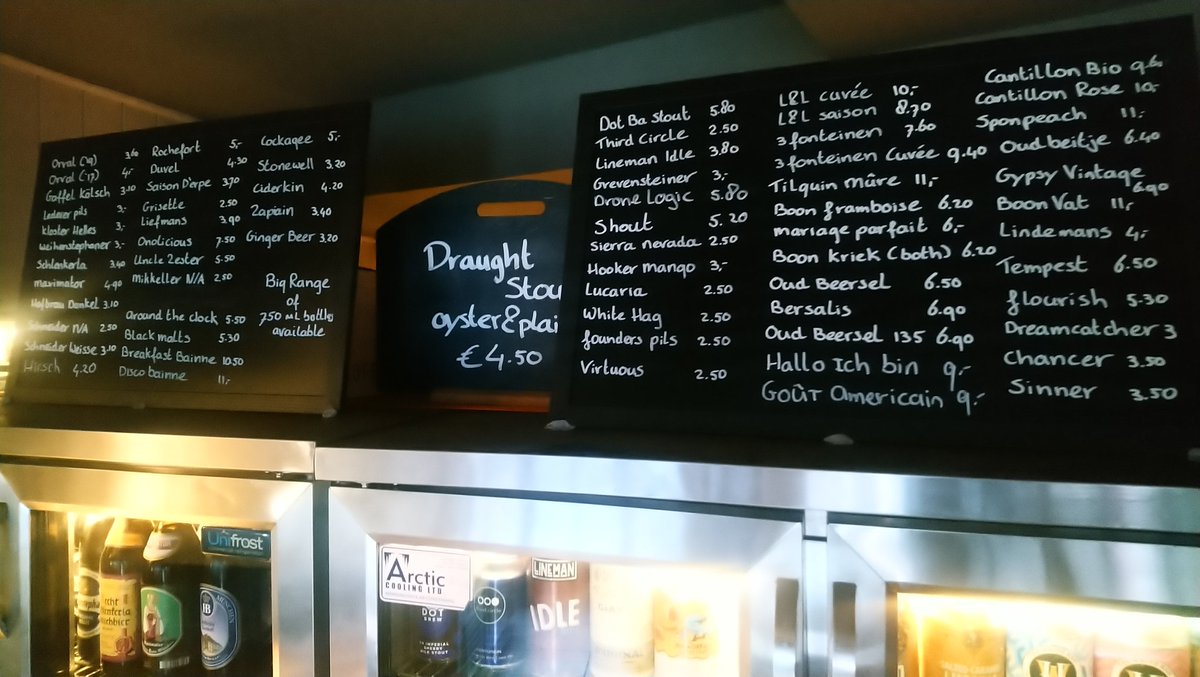 Orval ('19) 3.60
Orval ('17) 4,-
Gaffel Kölsch 3.10
Lederer pils 3,-
kloster Helles 3,-
Weihenstephaner 3,-
Schlenkerla 3.40
maximator 4.90
Hofbrau Dunkel 3.10
Schneider N/A 2.50
Schneider Weisse 3.10
Hirsch 4.20
Rochefort 5,-
Duvel 4.30
Saison D'erpe 3.70
Grisette 2.50
Liefmans 3.90
Onolicious 7.50
Uncle Zester 5.50
Mikkeller N/A 2.50
Around the clock 5.50
Black malts 5.30
Breakfast Bainne 10.50
Disco bainne 11,-
Cockagee 5,-
Stonewell 3.20
Ciderkin 4.20
Zapiain 3.40
Ginger Beer 3.20
Big Range
of
750 ml bottles
available
Draught
Stou
oyster & plai
€4.50
Dot Ba Stout 5.80
Third Circle 2.50
Lineman Idle 3.80
Grevensteiner 3,-
Drone Logic 5.80
Shout 5.20
Sierra nevada 2.50
Hooker mango 3,-
Lucaria 2.50
White Hag 2.50
founders pils 2.50
Virtuous 2.50
L&L cuvée 10,-
L&L saison 8.70
3 fonteinen 7.60
3 fonteinen Cuvée 9.40
Tilquin mûre 11,-
Boon framboise 6.20
mariage parfait 6,-
Boon kriek (both) 6.20
Oud Beersel 6.50
Bersalis 6.90
Oud Beersel 135 6.90
Hallo Ich bin 9,-
GOÛT Americain 9,-
Cantillon Bio 9.60
Cantillon Rose 10,-
Sponpeach 11,-
Oudbeitje 6.40
Gypsy Vintage
6.90
Boon Vat 11,-
Lindemans 4,-
Tempest 6.50
flourish 5.30
Dreamcatcher 3
Chancer 3.50
Sinner 3.50
Unifrost
Arctic
COOLING LTD
DOT
BREW
LINEMAN
IDLE
HB
MÜNCHEN
W